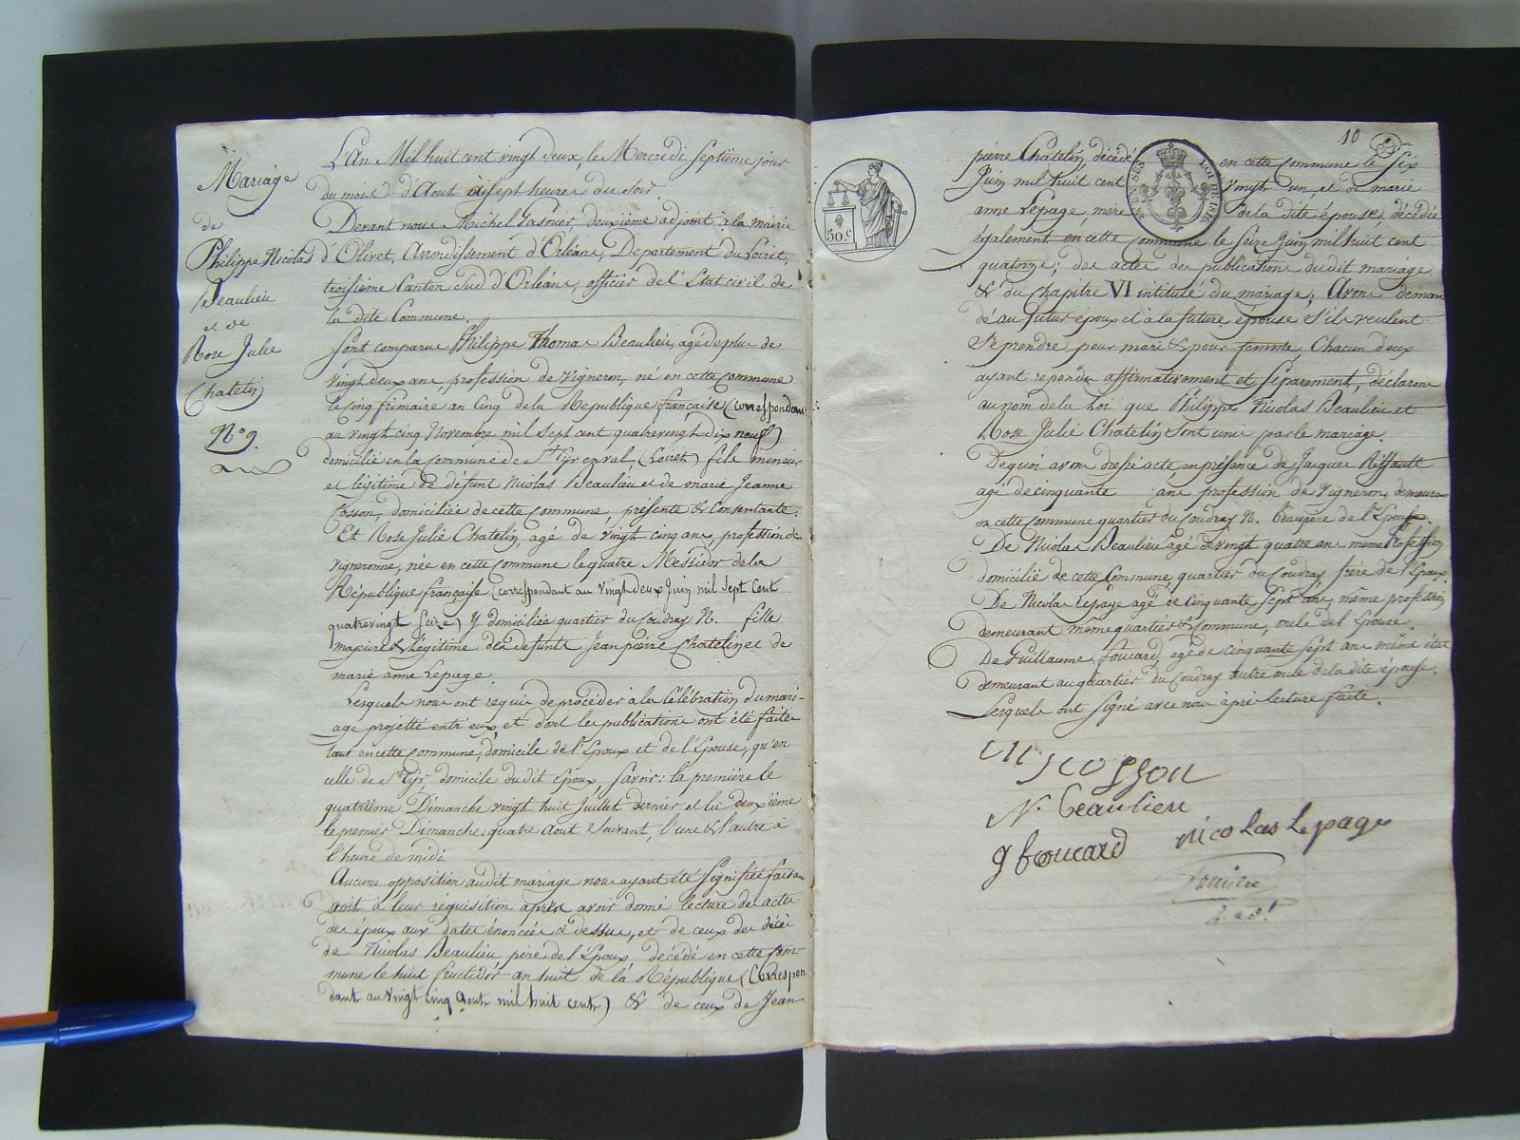 Mariage
de
Philippe Nicolas
Beaulieu
et de
Rose Julie
Chatelin
N° 9.
L'an Mil huit cent vingt deux, le Mercredi Septième jour
du mois d'Aout à sept heures du soir
Devant nous Michel deuxième adjoint à la mairie
d'Olivet, Arrondissement d'Orléans, Département du Loiret,
troisième Canton Sud d'Orléans, officier de l'Etat civil de
la dite Commune.
Sont comparus Philippe Thomas Beaulieu, agé de plus de
vingt deux ans, profession de vigneron, né en cette commune
le cinq frimaire an cinq de la République française (correspondant
au vingt cinq Novembre mil sept cent quatrevingt dix neuf)
domicilié en la commune de St Cyr en val, (Loiret) fils mineur
et légitime de défunt Nicolas Beaulieu et de marie Jeanne
Cosson, domiciliée de cette commune, présente & Consentante.
Et Rose Julie Chatelin, agé de vingt cinq ans, profession de
vigneronne, née en cette commune le quatre Messidor de la
République française (correspondant au vingt deux Juin mil sept cent
quatrevingt seize) y domiciliée quartier du Coudray N. fille
majeure & légitime de defunts Jean pierre Chatelin et de
marie anne Lepage.
Lesquels nous ont requis de procéder à la Célébration du mari-
age projetté entre eux, et dont les publications ont été faites
tant en cette commune, domicile de l'Epoux et de l'Epouse, qu'en
celle de St Cyr domicile dudit époux Savoir: la première le
quatrième Dimanche vingt huit Juillet dernier et la deuxième
le premier Dimanche quatre Aout suivant, l'une & l'autre à
l'heure de midi
Aucune opposition audit mariage nous ayant été signifiée faisant
droit à leur requisition après avoir donné lecture des actes
des époux aux dates énoncées ci dessus, et de ceux des décès
de Nicolas Beaulieu père de l'Epoux, décédé en cette com-
mune le huit fructidor an huit de la République (Correspon
dant au vingt cinq Aout mil huit cent) & de ceux de Jean
10
50 c
pierre Chatelin, décédé en cette commune le Six
Juin mil huit cent vingt un, et de marie
anne Lepage, mère de la dite épouse, décédée
également en cette commune le seize Juin mil huit cent
quatorze; des actes de publications dudit mariage
& du chapitre VI intitulé du mariage, Avons deman
dé au futur époux et à la future épouse s'ils veulent
Se prendre pour mari & pour femme, Chacun d'eux
ayant repondu affirmativement et Séparement, déclarons
au nom de la Loi que Philippe Nicolas Beaulieu et
Rose Julie Chatelin sont unis par le mariage.
De quoi avons dressé acte, en présence de Jacques
agé de cinquante ans profession de vigneron, demeurant
en cette commune quartier du Coudray N. beaupère de l'Epoux.
De Nicolas Beaulieu agé de vingt quatre ans même profession
domicilié de cette Commune, quartier du Coudray frère de l'Epoux.
De Nicolas Lepage agé de cinquante sept ans même profession
demeurant même quartier & Commune, oncle de l'Epouse.
De Guillaume foucard, agé de cinquante sept ans même état
demeurant au quartier du Coudray autre oncle de la dite épouse.
Lesquels ont signé avec nous après lecture faite.
N. beaulieu
g foucard
nicolas Lepage